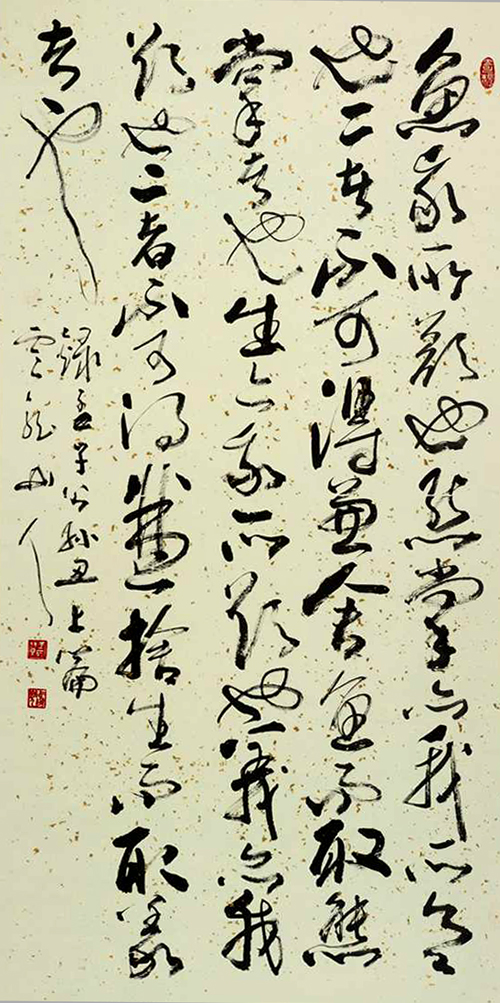 魚我所欲也熊掌亦我所欲
也二者不可得兼舍魚而取熊
掌者也生亦我所欲也義亦我
欲也二者不可得兼捨生而取義
者也
錄孟子公孫丑上篇
雲龍山人